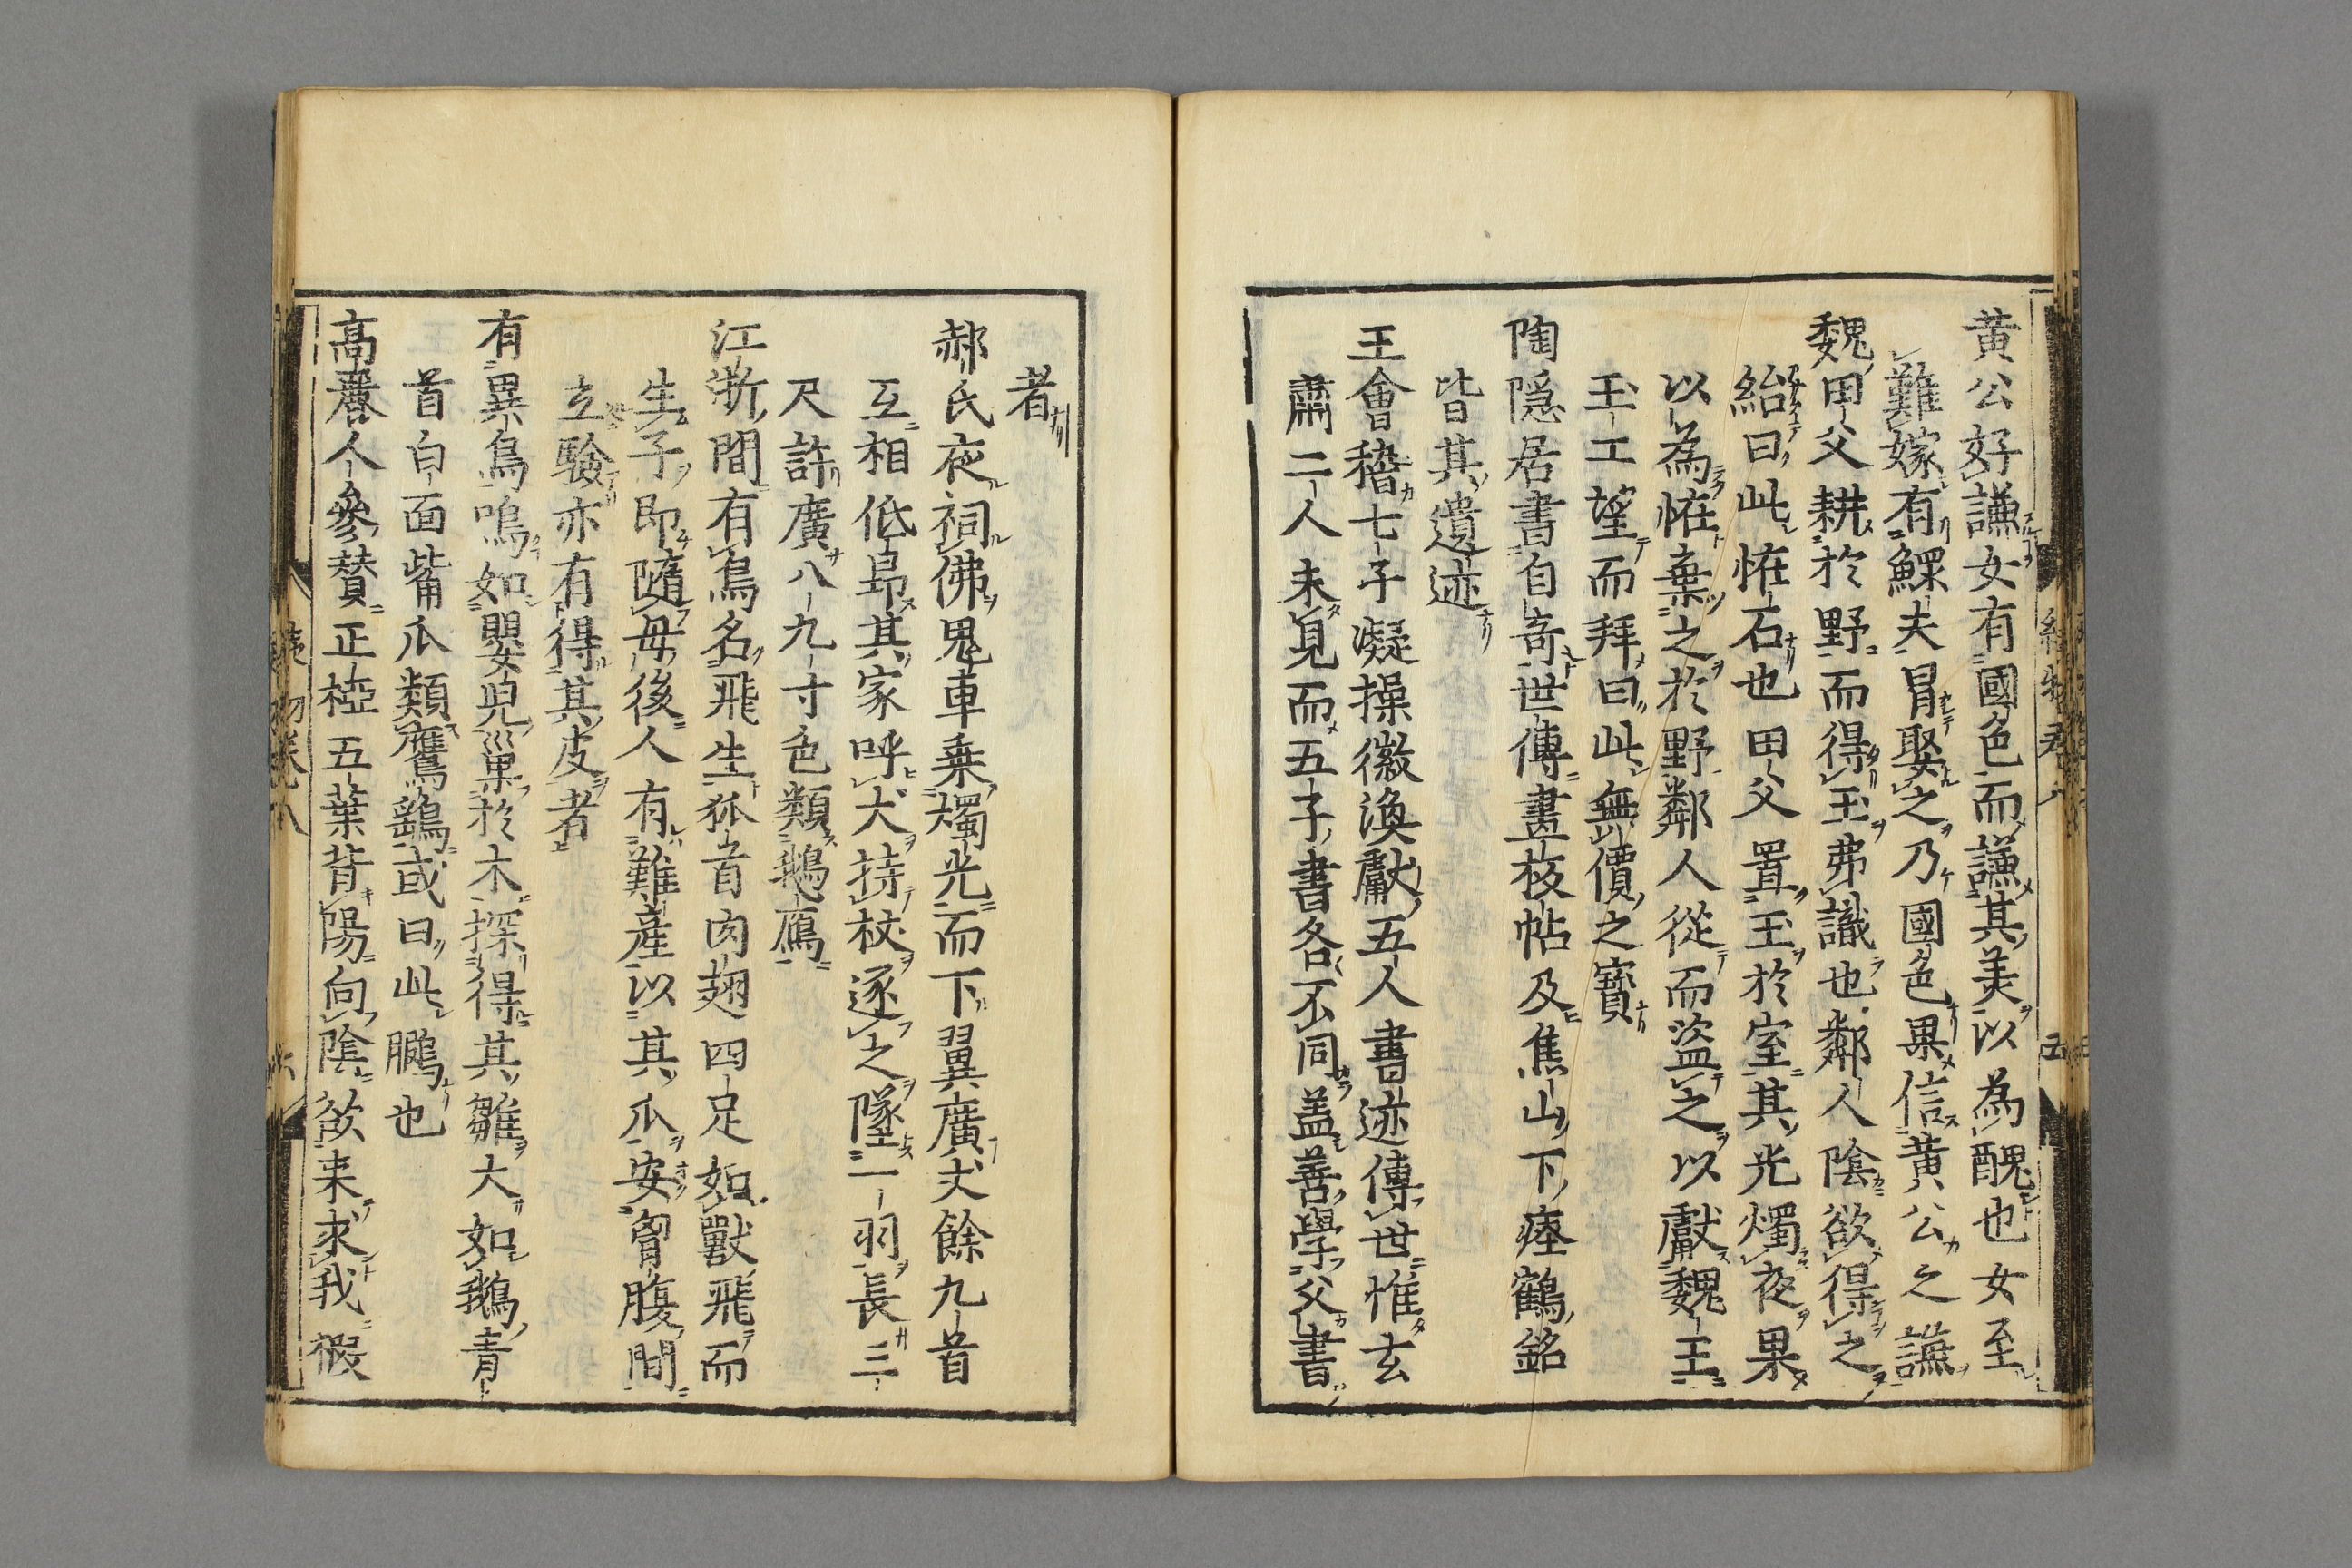 黄公好謙女有國色而謙其美以為醜也女至
難嫁有鰥夫冒娶之乃國色果信黄公之謙
魏田父耕於野而得玉弗識也鄰人陰欲得之
紿曰此恠石也田父置玉於室其光燭夜果
以為恠棄之於野鄰人從而盗之以獻魏王
玉工望而拜曰此無價之寳
陶隠居書自竒世傳畫板帖及焦山下瘞鶴銘
皆其遺迹
王會稽七子凝操徽渙獻五人書迹傳世惟玄
肅二人未見而五子書各不同盖善學父書
者
郝氏夜祠佛鬼車乗燭光而下翼廣丈餘九首
互相低昻其家呼犬持杖逐之墜一羽長三
尺許廣八九寸色類鵝鴈
江浙間有鳥名飛生狐首肉翅四足如獸飛而
生子即隨母後人有難産以其爪安胷腹間
立驗亦有得其皮者
有異鳥鳴如嬰兒巣於木探得其雛大如鵝青
首白面觜爪類鷹鷂或曰此鵬也
高麗人參賛正椏五葉背陽向陰欲来求我椵